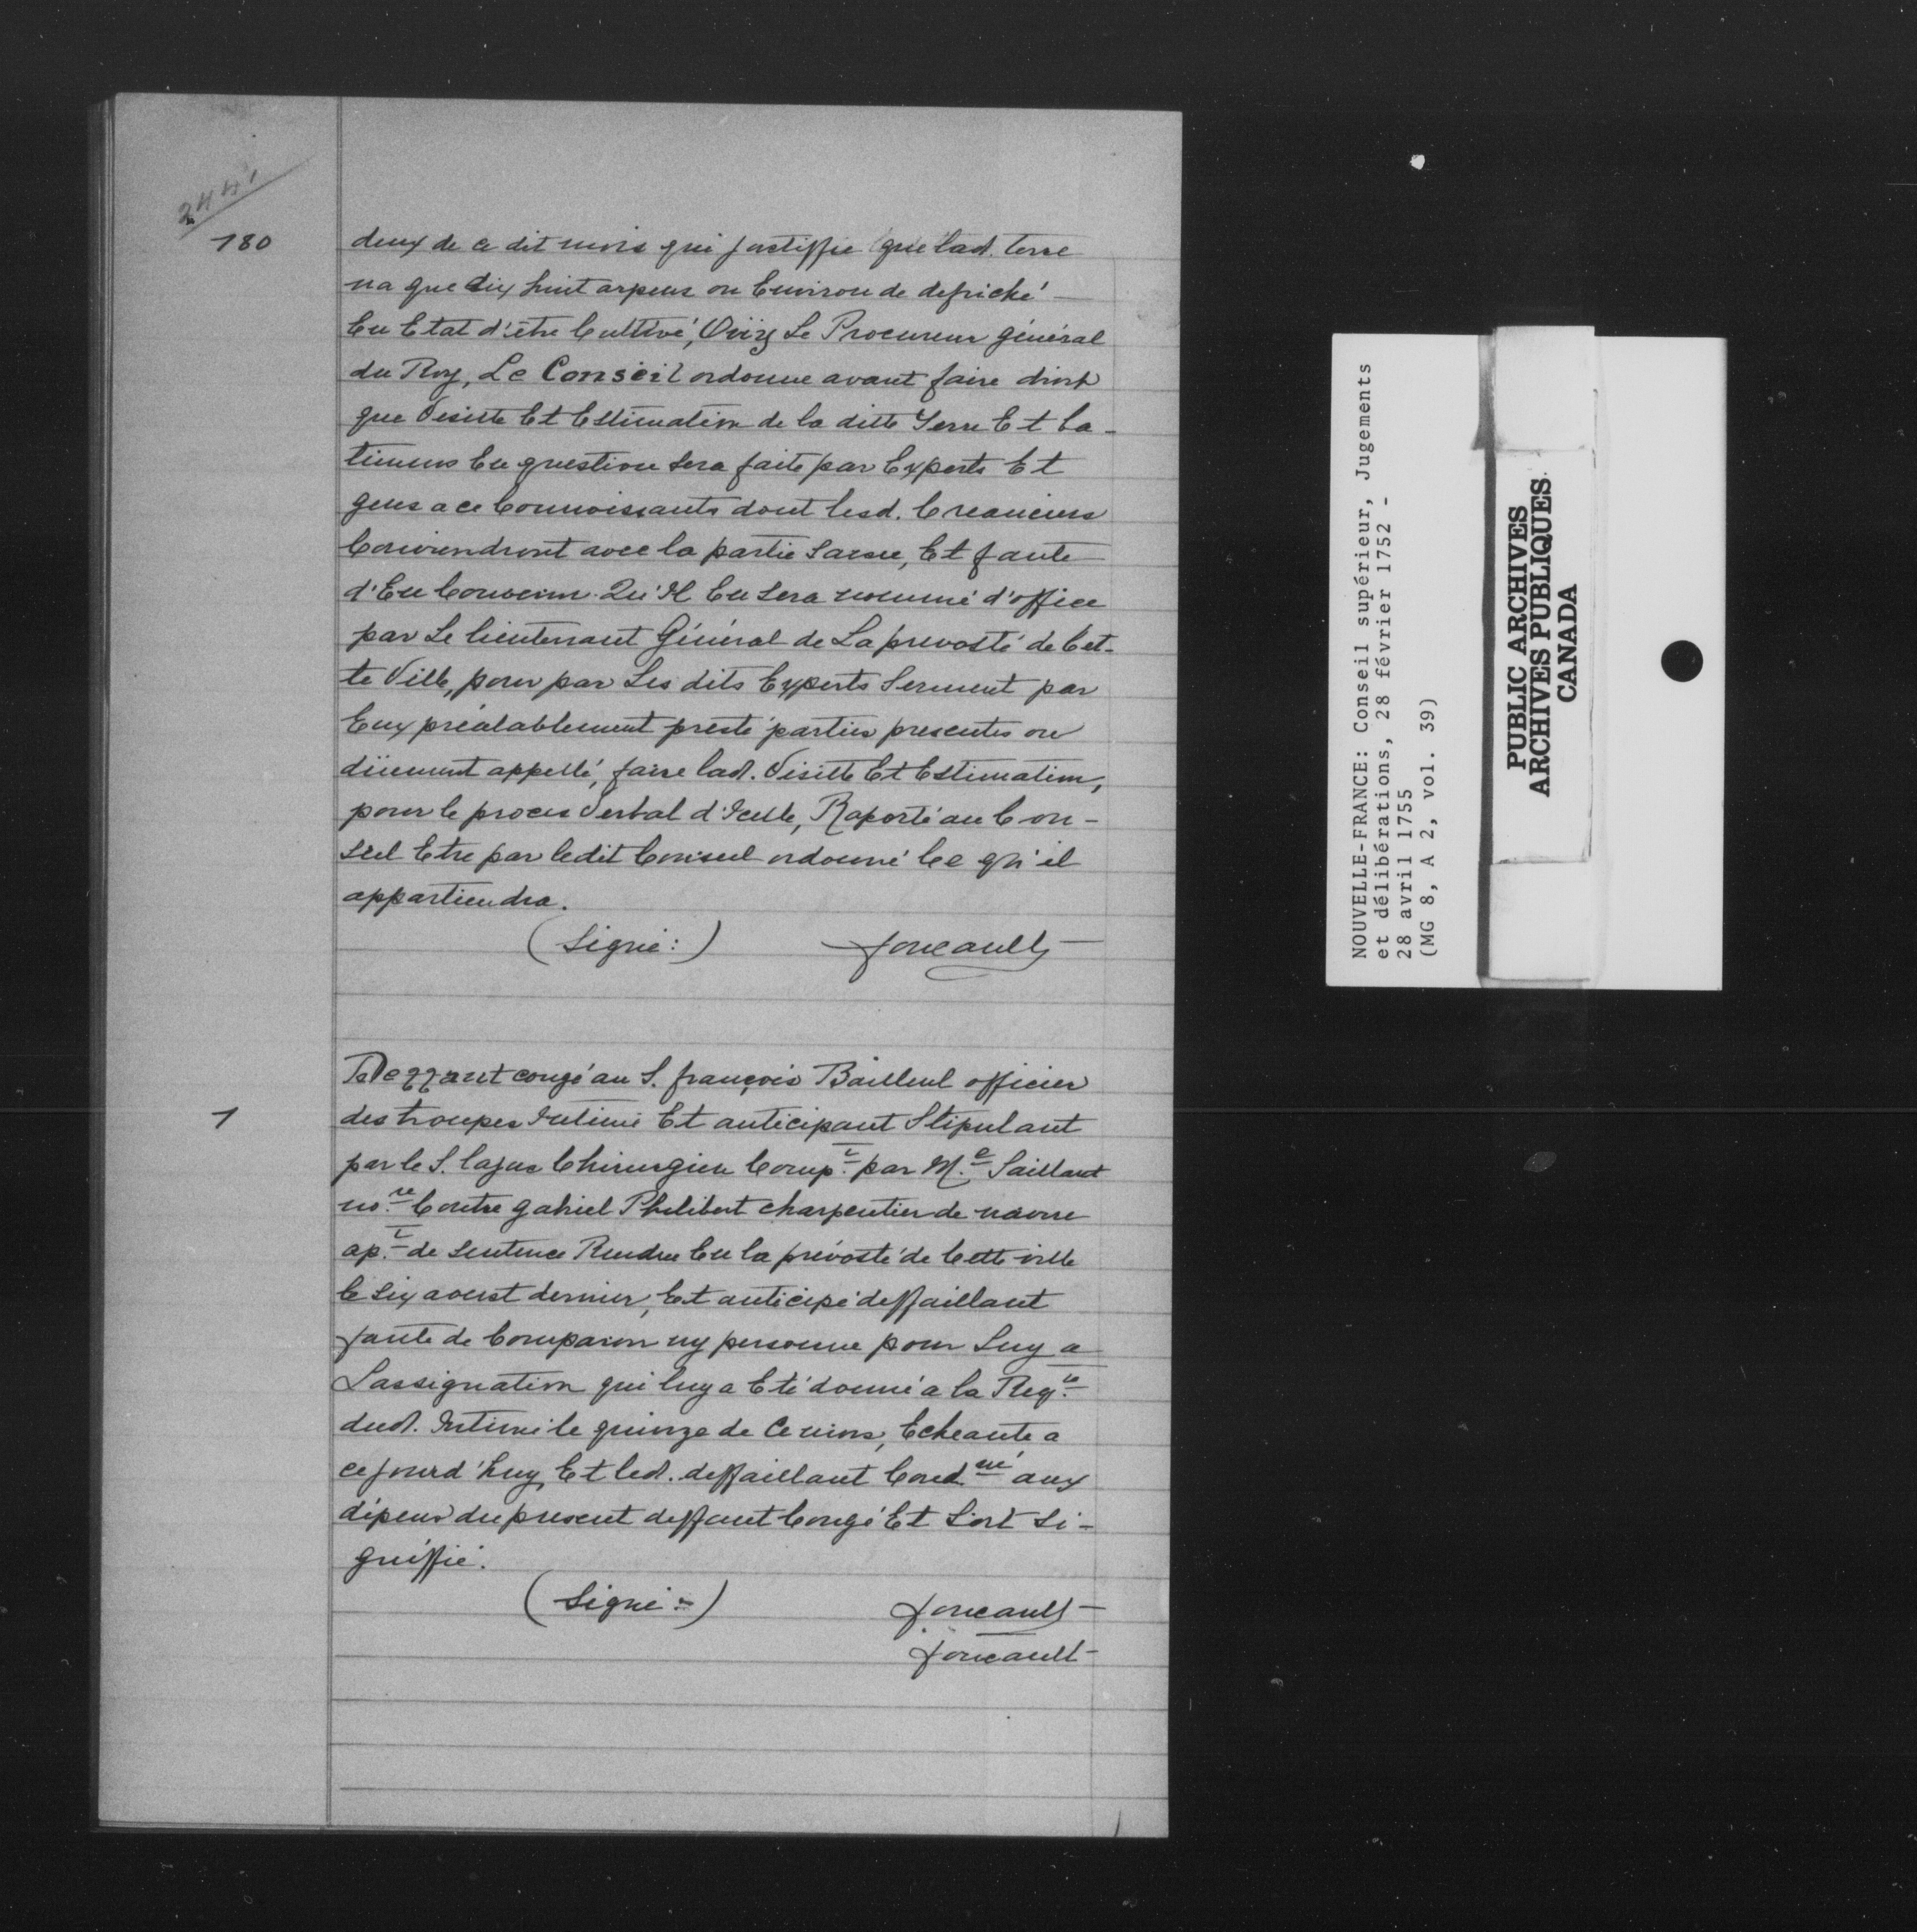 2441
180
deux de ce dit mois qui justiffie que lad. terre
na que dix huit arpens ou Environ de defriché
En Etat d'être Cultivé, Oüy Le Procureur général
du Roy, Le Conseil ordonne avant faire droit
que Visitte Et Estimation de la ditte Terre Et ba-
timens En question sera faite par Experts Et
gens a ce Connoissants dont lesd. Creanciers
Conviendront avec la partie saisie, Et faute
d'En Convenir Qu'Il En sera nommé d'office
par Le lieutenant Général de La prevosté de Cet-
te Ville, pour par Les dits Experts Serment par
Eux préalablement presté parties presentes ou
düement appellé, faire lad. Visitte Et Estimation,
pour le procès Verbal d'Icelle, Raporté au Con-
seil Etre par ledit Conseil ordonné Ce qu'il
appartiendra.
(Signé:) foucault
Deffaut congé au S. françois Bailleul officier
1
des troupes Intimé Et anticipant Stipulant
par le S. lajus Chirurgien Comp.t par M.e Saillant
no.re Contre gabriel Philibert charpentier de navire
ap.t de sentence Rendue En la prévosté de Cette ville
le six aoust dernier, Et anticipé deffaillant
faute de Comparoir ny personne pour Luy a
Lassignation qui luy a Eté donné a la Req.te
dud. Intimé le quinze de Ce mois, Echeante a
ce jourd'huy Et led. deffaillant Cond.né aux
dépens du present deffaut Congé Et Soit Si-
gniffié.
(Signé:) foucault
foucault
NOUVELLE-FRANCE: Conseil supérieur, Jugements
et délibérations, 28 février 1752 -
28 avril 1755
(MG 8, A 2, vol. 39)
PUBLIC ARCHIVES
ARCHIVES PUBLIQUES
CANADA